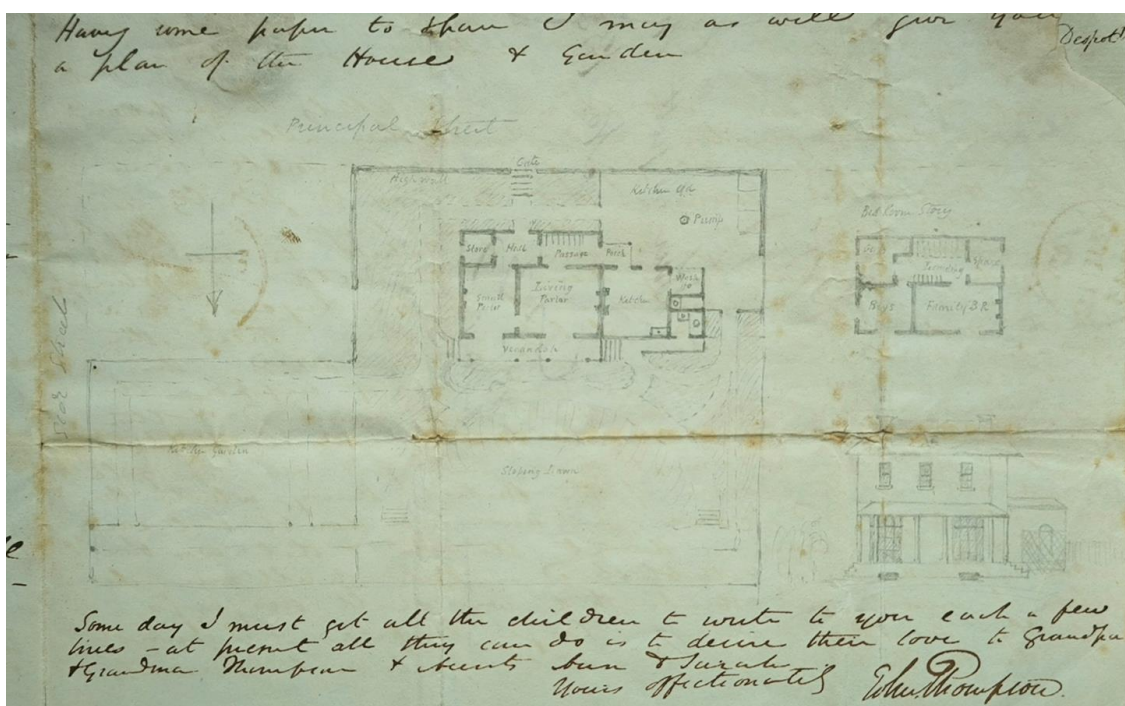 Having some paper to spare I may as well give you
a plan of the House & Garden
Despot
Principal Street
Gate
High wall
Kitchen Yd
Pump
Bed Room Story
Store
Hall
Passage
Porch
Wash
Living
Parlor
Small
Parlor
Kitchen
Verandah
Landing
Boys
Family B R
Kitchen Garden
Sloping Lawn
Some day I must get all the children to write to you each a few
lines - at present all they can do is to desire their love to Grandpa
& Grandma Thompson & Aunts Ann & Sarah
Yours affectionately John Thompson.